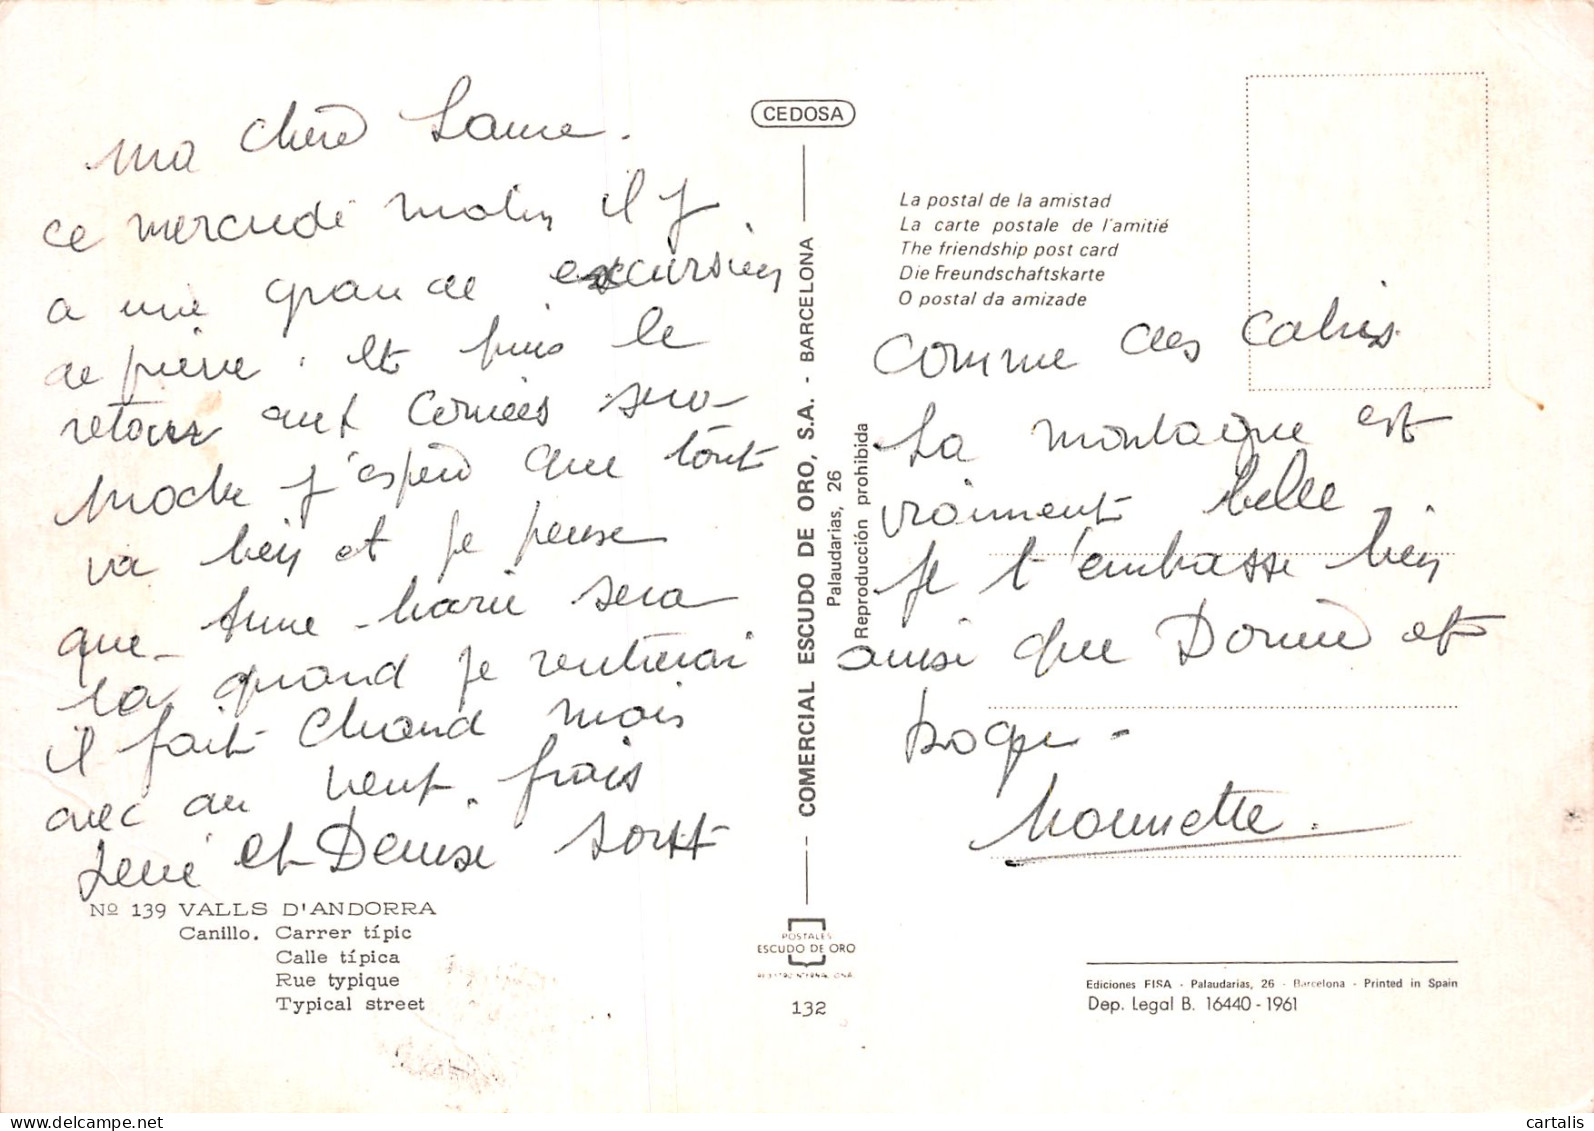 ma chère
ce mercredi matin il y
a une grande excursion
de prévue. et puis le
retour aux Corniées sera
moche j'espère que tout
va bien et je pense
que Anne-Marie sera
là quand je rentrerai
il fait chaud mais
avec du vent frais
René et Denise sont
CEDOSA
COMERCIAL ESCUDO DE ORO, S.A. - BARCELONA
Palaudarias, 26
Reproducción prohibida
La postal de la amistad
La carte postale de l'amitié
The friendship post card
Die Freundschaftskarte
O postal da amizade
comme des cabris
La montagne est
vraiment belle.
Je t'embrasse bien
ainsi que et
Mounette.
Nº 139 VALLS D'ANDORRA
Canillo. Carrer típic
Calle típica
Rue typique
Typical street
POSTALES
ESCUDO DE ORO
132
Ediciones FISA - Palaudarias, 26 - Barcelona - Printed in Spain
Dep. Legal B. 16440 - 1961
cartalis